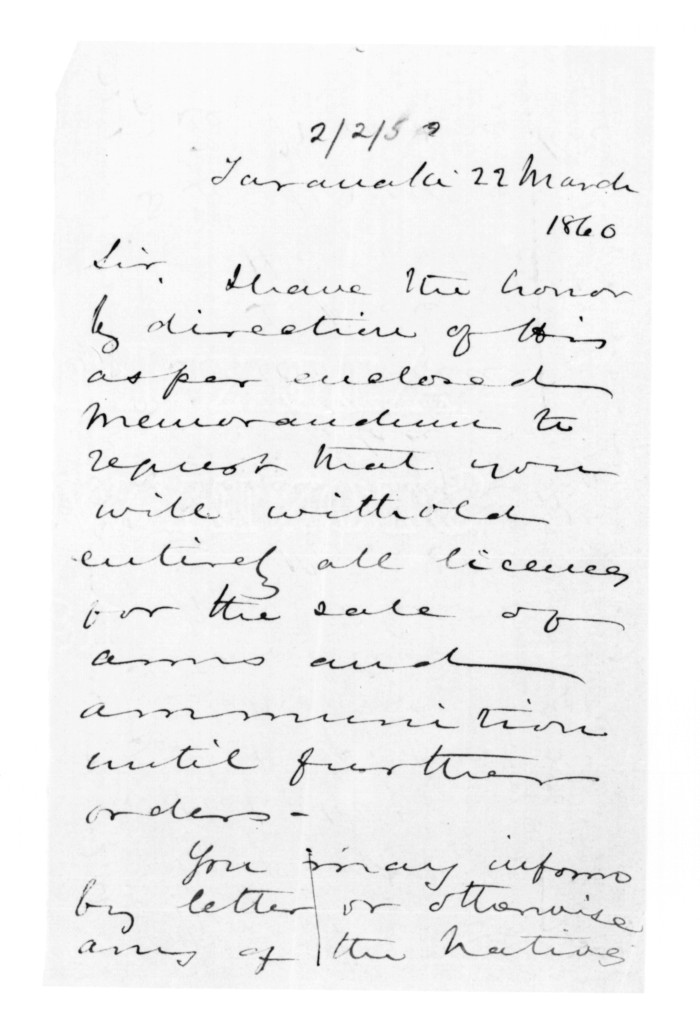 2/2/59
Taranaki 22 March
1860
Sir. I have the honor
by direction of His
as per enclosed
memorandum to
request that you
will withold
entirely all licences
for the sale of
arms and
ammunition
until further
orders -
You may inform
by letter or otherwise
any of the Natives